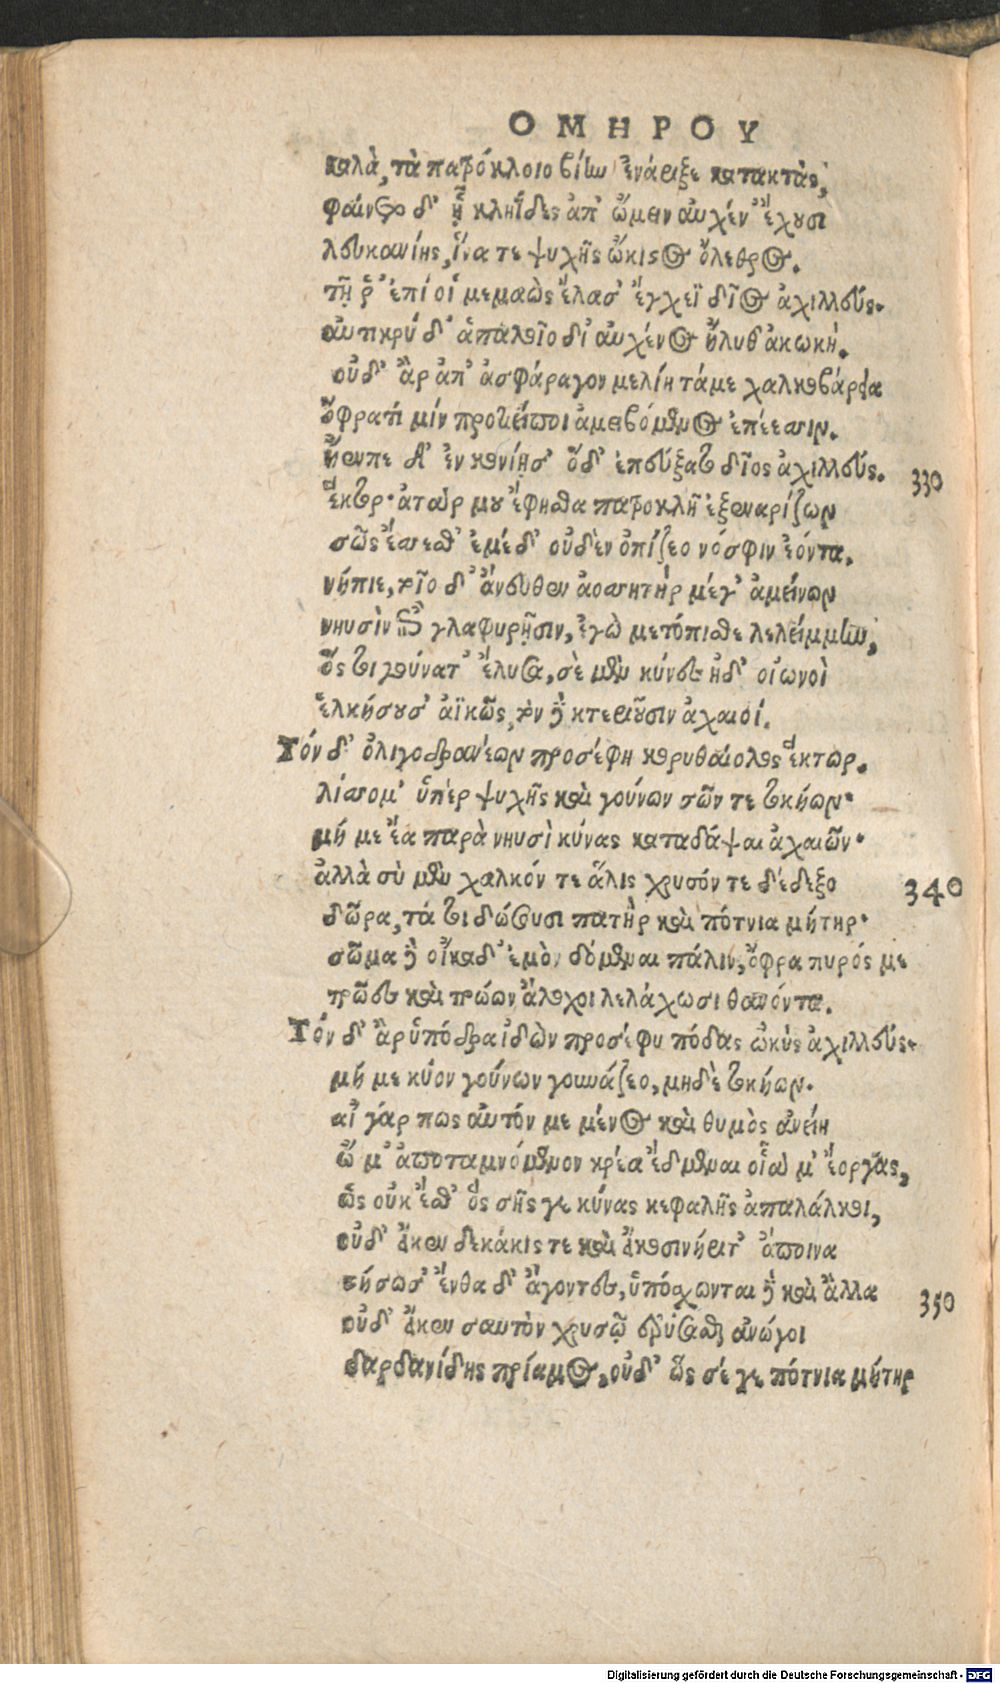 ΟΜΗΡΟΥ
καλὰ, τὰ πατρόκλοιο βίην ἐνάριξε κατακτὰς,
φαίνετο δ' ᾗ κληΐδες ἀπ' ὤμων αὐχέν' ἔχουσι
λευκανίης, ἵνα τε ψυχῆς ὤκιστος ὄλεθρος.
τῇ ῥ' ἐπί οἱ μεμαὼς ἔλασ' ἔγχεϊ δῖος ἀχιλλεύς.
ἀντικρὺ δ' ἁπαλοῖο δι' αὐχένος ἤλυθ' ἀκωκή.
οὐδ' ἂρ ἀπ' ἀσφάραγον μελίη τάμε χαλκοβάρεια
ὄφρα τί μιν προτιείποι ἀμειβόμενος ἐπέεσσιν.
ἤριπε δ' ἐν κονίῃς' ὅδ' ἐπεύξατο δῖος ἀχιλλεύς.
330
ἕκτορ· ἀτάρ που ἔφησθα πατροκλῆ' ἐξεναρίζων
σῶς ἔσσεσθ' ἐμὲ δ' οὐδὲν ὀπίζεο νόσφιν ἐόντα.
νήπιε, τοῖο δ' ἄνευθεν ἀοσσητὴρ μέγ' ἀμείνων
νηυσὶν ἐπὶ γλαφυρῇσιν, ἐγὼ μετόπισθε λελείμμην,
ὅς τοι γούνατ' ἔλυσα, σὲ μὲν κύνες ἠδ' οἰωνοὶ
ἑλκήσουσ' ἀϊκῶς, τὸν δὲ κτεριοῦσιν ἀχαιοί.
Τόν δ' ὀλιγοδρανέων προσέφη κορυθαίολος ἕκτωρ.
λίσσομ' ὑπὲρ ψυχῆς καὶ γούνων σῶν τε τοκήων·
μή με ἔα παρὰ νηυσὶ κύνας καταδάψαι ἀχαιῶν·
ἀλλὰ σὺ μὲν χαλκόν τε ἅλις χρυσόν τε δέδεξο
340
δῶρα, τά τοι δώσουσι πατὴρ καὶ πότνια μήτηρ·
σῶμα δὲ οἴκαδ' ἐμὸν δόμεναι πάλιν, ὄφρα πυρός με
τρῶες καὶ τρώων ἄλοχοι λελάχωσι θανόντα.
Τόν δ' ἂρ ὑπόδρα ἰδὼν προσέφη πόδας ὠκὺς ἀχιλλεύς·
μή με κύον γούνων γουνάζεο, μηδὲ τοκήων.
αἲ γάρ πως αὐτόν με μένος καὶ θυμὸς ἀνείη
ὤ μ' ἀποταμνόμενον κρέα ἔδμεναι οἷά μ' ἔοργας,
ὡς οὐκ ἔσθ' ὃς σῆς γε κύνας κεφαλῆς ἀπαλάλκοι,
οὐδ' ἄκεν δεκάκις τε καὶ ἄκοσινήριτ' ἄποινα
στήσωσ' ἐνθα δ' ἄγοντες, ὑπόσχωνται δὲ καὶ ἄλλα
350
οὐδ' ἄκεν σαυτὸν χρυσῷ ἐρύσασθαι ἀνώγοι
δαρδανίδης πρίαμος, οὐδ' ὧς σέ γε πότνια μήτηρ
Digitalisierung gefördert durch die Deutsche Forschungsgemeinschaft - DFG